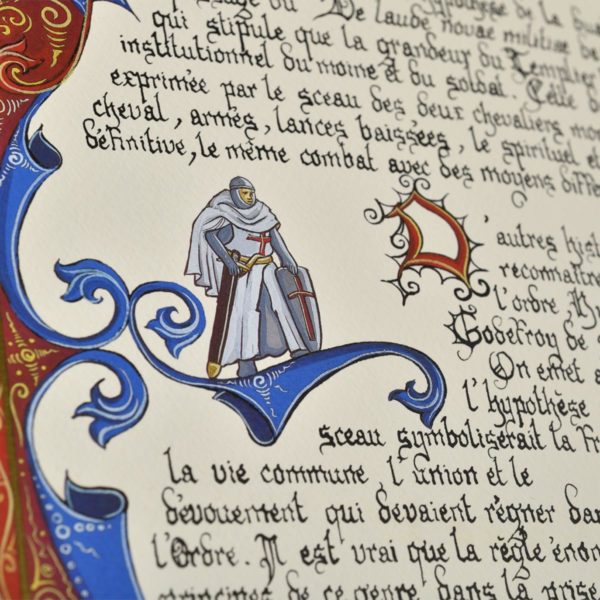 De laude novae militiae
qui stipule que la grandeur du Templier
institutionnel du moine et du soldat. Celle
exprimée par le sceau des deux chevaliers
cheval, armés, lances baissées, le spirituel et
définitive, le même combat avec des moyens
D'autres
reconnaître
l'ordre,
Godefroy de
On émet
l'hypothèse
sceau symboliserait la
la vie commune, l'union et le
dévouement qui devaient régner
l'Ordre. Il est vrai que la règle
principes de ce genre, dans la prise